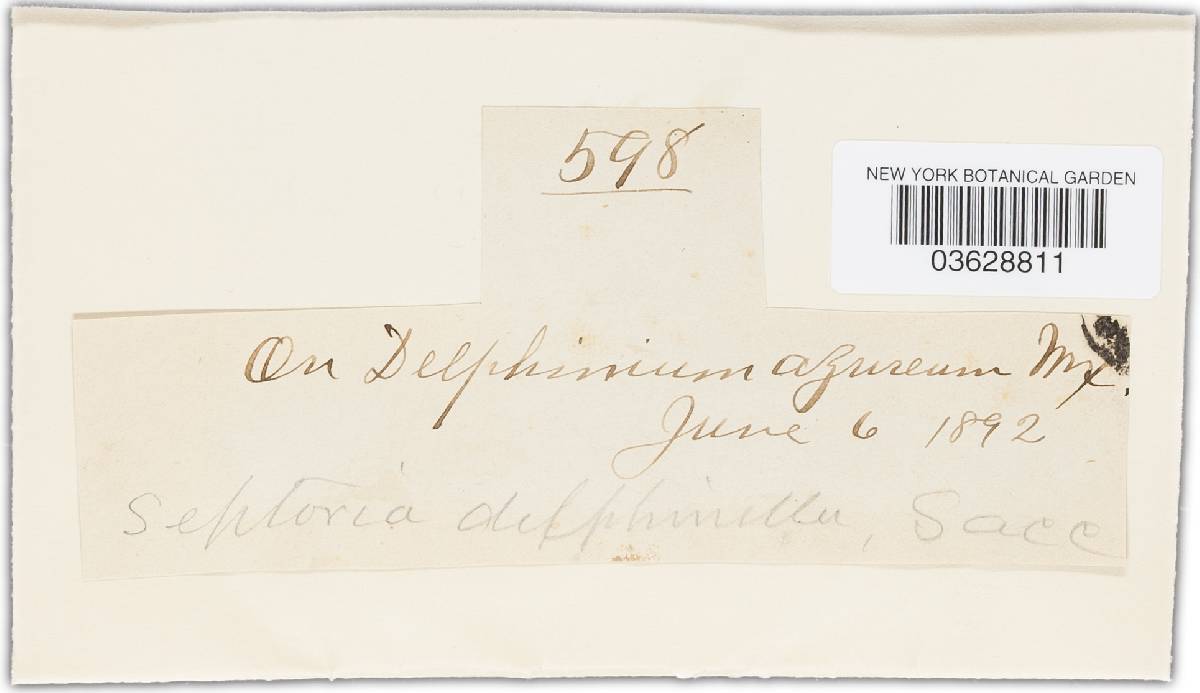 598
NEW YORK BOTANICAL GARDEN
03628811
On Delphinium azureum Mx.
June 6 1892
Septoria delphinella, Sacc